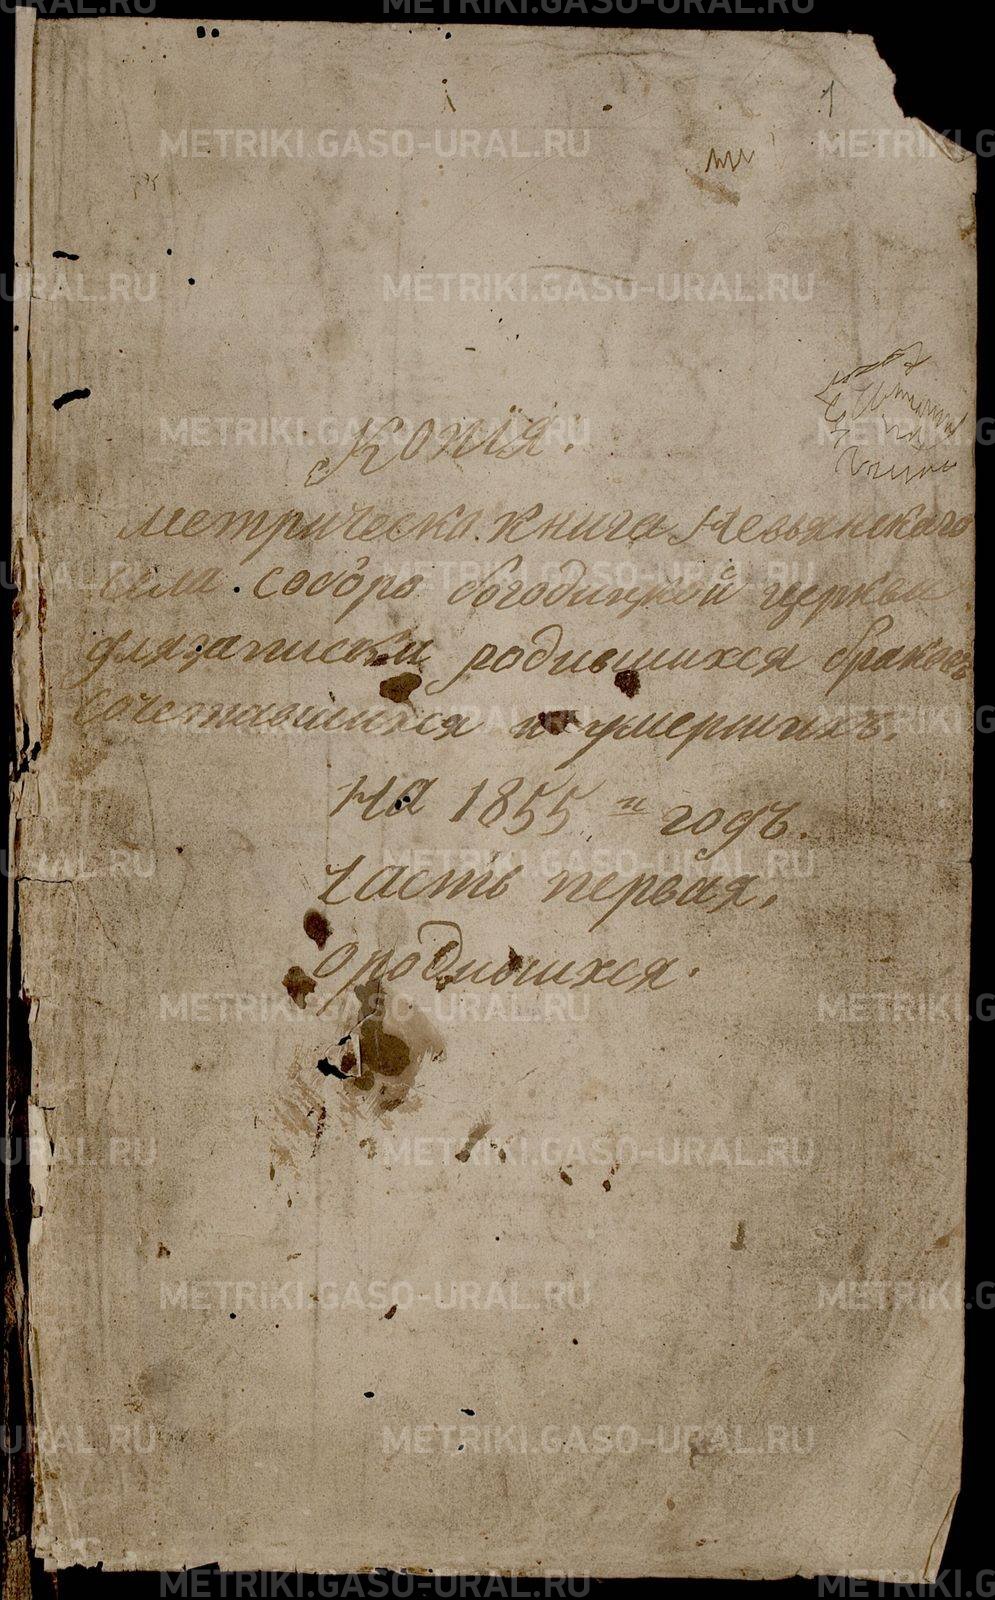 1
Копія.
метрическа. книга Невьянскаго
села. соборо богородицкой церкви
для записки родившихся браковъ
сочетавшихся и умершихъ.
На 1855 й годъ.
часть первая.
о родившихся.
METRIKI.GASO-URAL.RU